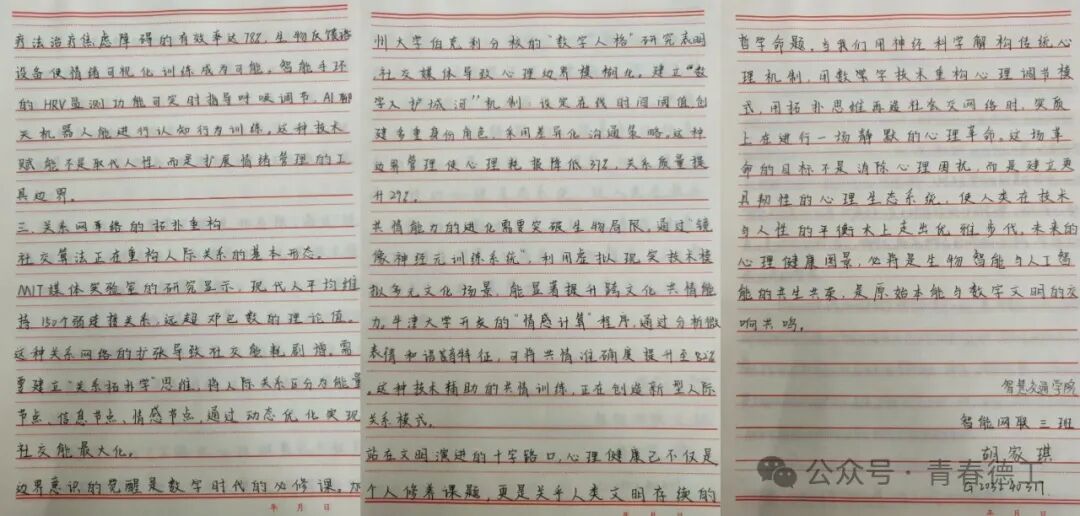 疗法治疗焦虑障碍的有效率达78%,生物反馈
设备使情绪可视化训练成为可能。智能手环
的HRV监测功能可实时指导呼吸调节,AI聊
天机器人能进行认知行为训练。这种技术
赋能不是取代人性,而是扩展情绪管理的工
具边界。
三、关系网络的拓扑重构
社交算法正在重构人际关系的基本形态。
MIT媒体实验室的研究显示,现代人平均维
持150个弱连接关系,远超邓巴数的理论值。
这种关系网络的扩张导致社交能耗剧增。需
要建立“关系拓扑学”思维,将人际关系区分为能量
节点、信息节点、情感节点,通过动态优化实现
社交能最大化。
边界意识的觉醒是数字时代的必修课。加
年 月 日
州大学伯克利分校的“数字人格”研究表明
,社交媒体导致心理边界模糊化。建立“数
字护城河”机制:设定在线时间阈值,创
建多重身份角色,采用差异化沟通策略。这种
边界管理使心理耗损降低37%,关系质量提
升29%。
共情能力的进化需要突破生物局限。通过“镜
像神经元训练系统”,利用虚拟现实技术模
拟多元文化场景,能显著提升跨文化共情能
力。牛津大学开发的“情感计算”程序,通过分析微
表情和语音特征,可将共情准确度提升至82%
。这种技术辅助的共情训练,正在创造新型人际
关系模式。
站在文明演进的十字路口,心理健康已不仅是
个人修养课题,更是关乎人类文明存续的
年 月 日
哲学命题。当我们用神经科学解构传统心
理机制,用数字技术重构心理调节模
式,用拓扑思维再造社会交网络时,实质
上在进行一场静默的心理革命。这场革
命的目标不是消除心理困扰,而是建立更
具韧性的心理生态系统,使人类在技术
与人性的平衡木上走出优雅步伐。未来的
心理健康图景,必将是生物智能与人工智
能的共生共荣,是原始本能与数字文明的交
响共鸣。
智慧交通学院
智能网联三班
胡家琪
年 月 日
公众号·青春德工